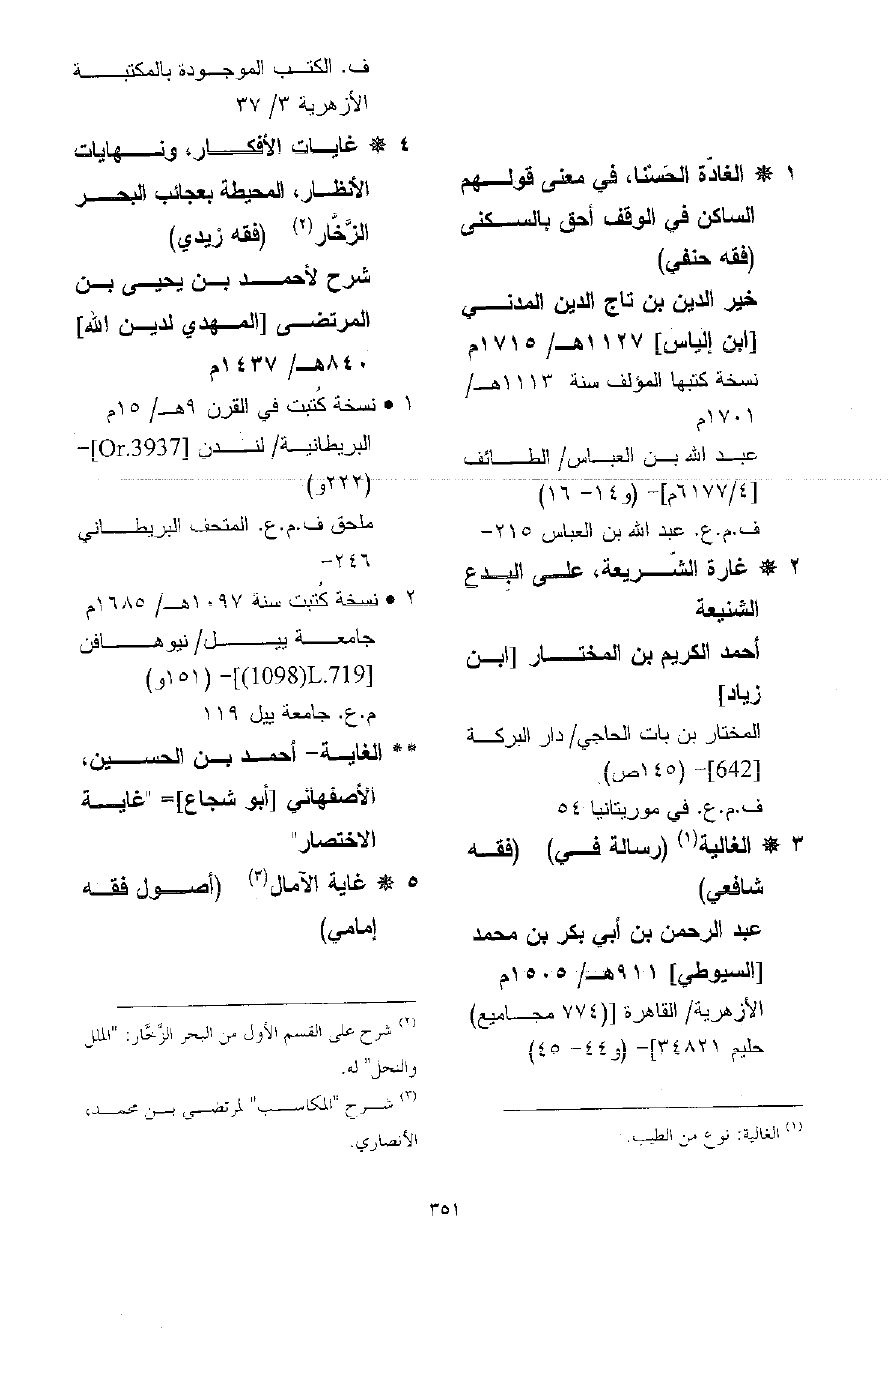 ١ * الغادّة الحَسنْا، في معنى قولهم
الساكن في الوقف أحق بالسكنى
(فقه حنفي)
خير الدين بن تاج الدين المدني
[ابن إلياس] ١١٢٧هـ/ ١٧١٥م
نسخة كتبها المؤلف سنة ١١١٣هـ/
١٧٠١م
عبد الله بن العباس/ الطائف
[٦١٧٧/٤م]– (و١٤– ١٦)
ف.م.ع. عبد الله بن العباس ٢١٥–
٢ * غارة الشّريعة، على البِدع
الشنيعة
أحمد الكريم بن المختار [ابن
زياد]
المختار بن بات الحاجي/ دار البركة
[642]– (١٤٥ص)
ف.م.ع. في موريتانيا ٥٤
٣ * الغالية(١) (رسالة في) (فقه
شافعي)
عبد الرحمن بن أبي بكر بن محمد
[السيوطي] ٩١١هـ/ ١٥٠٥م
الأزهرية/ القاهرة [(٧٧٤ مجاميع)
حليم ٣٤٨٢١]– (و٤٤– ٤٥)
(١) الغالية: نوع من الطيب.
ف. الكتب الموجودة بالمكتبة
الأزهرية ٣/ ٣٧
٤ * غايات الأفكار، ونهايات
الأنظار، المحيطة بعجائب البحر
الزَّخَّار(٢) (فقه زيدي)
شرح لأحمد بن يحيى بن
المرتضى [المهدي لدين الله]
٨٤٠هـ/ ١٤٣٧م
١ • نسخة كُتبت في القرن ٩هـ/ ١٥م
البريطانية/ لندن [Or.3937]–
(٢٢٢و)
ملحق ف.م.ع. المتحف البريطاني
٢٤٦–
٢ • نسخة كُتبت سنة ١٠٩٧هـ/ ١٦٨٥م
جامعة ييل/ نيوهافن
[L.719(1098)]– (١٥١و)
م.ع. جامعة ييل ١١٩
** الغاية– أحمد بن الحسين،
الأصفهاني [أبو شجاع]= "غاية
الاختصار"
٥ * غاية الآمال(٣) (أصول فقه
إمامي)
(٢) شرح على القسم الأول من البحر الزَّخَّار: "الملل
والنحل" له.
(٣) شرح "المكاسب" لمرتضى بن محمد،
الأنصاري.
٣٥١